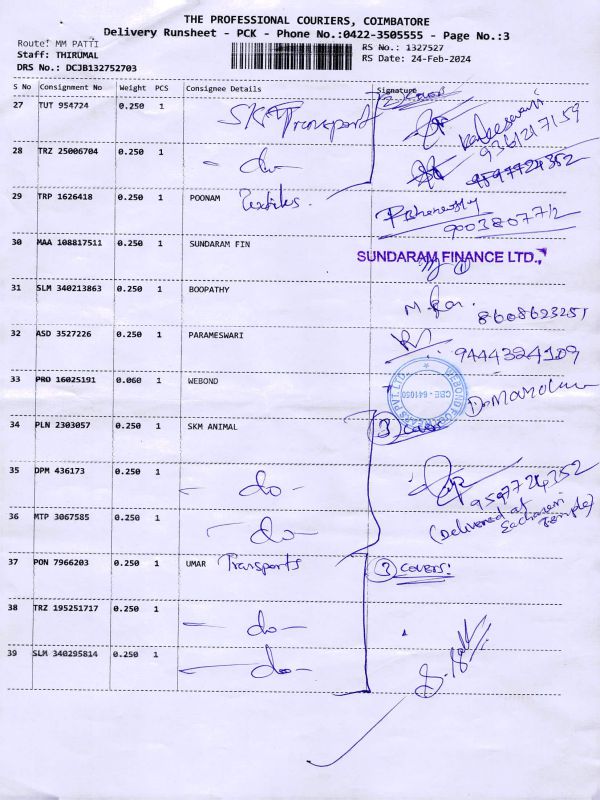 THE PROFESSIONAL COURIERS, COIMBATORE
Delivery Runsheet - PCK - Phone No.:0422-3505555 - Page No.:3
Route: MM PATTI
RS No.: 1327527
Staff: THIRUMAL
RS Date: 24-Feb-2024
DRS No.: DCJB132752703
S No Consignment No Weight PCS Consignee Details Signature
27 TUT 954724 0.250 1 SKM Transport
28 TRZ 25006704 0.250 1 - do -
9597724352
29 TRP 1626418 0.250 1 POONAM Textiles.
9003807712
30 MAA 108817511 0.250 1 SUNDARAM FIN
SUNDARAM FINANCE LTD.,
31 SLM 340213863 0.250 1 BOOPATHY
8608623251
32 ASD 3527226 0.250 1 PARAMESWARI
9444324109
33 PRO 16025191 0.060 1 WEBOND
34 PLN 2303057 0.250 1 SKM ANIMAL (3)
35 DPM 436173 0.250 1 - do -
9597724352
36 MTP 3067585 0.250 1 - do -
(Delivered at
Temple)
37 PON 7966203 0.250 1 UMAR Transports (3) COVERS:
38 TRZ 195251717 0.250 1 - do -
39 SLM 340295814 0.250 1 - do -